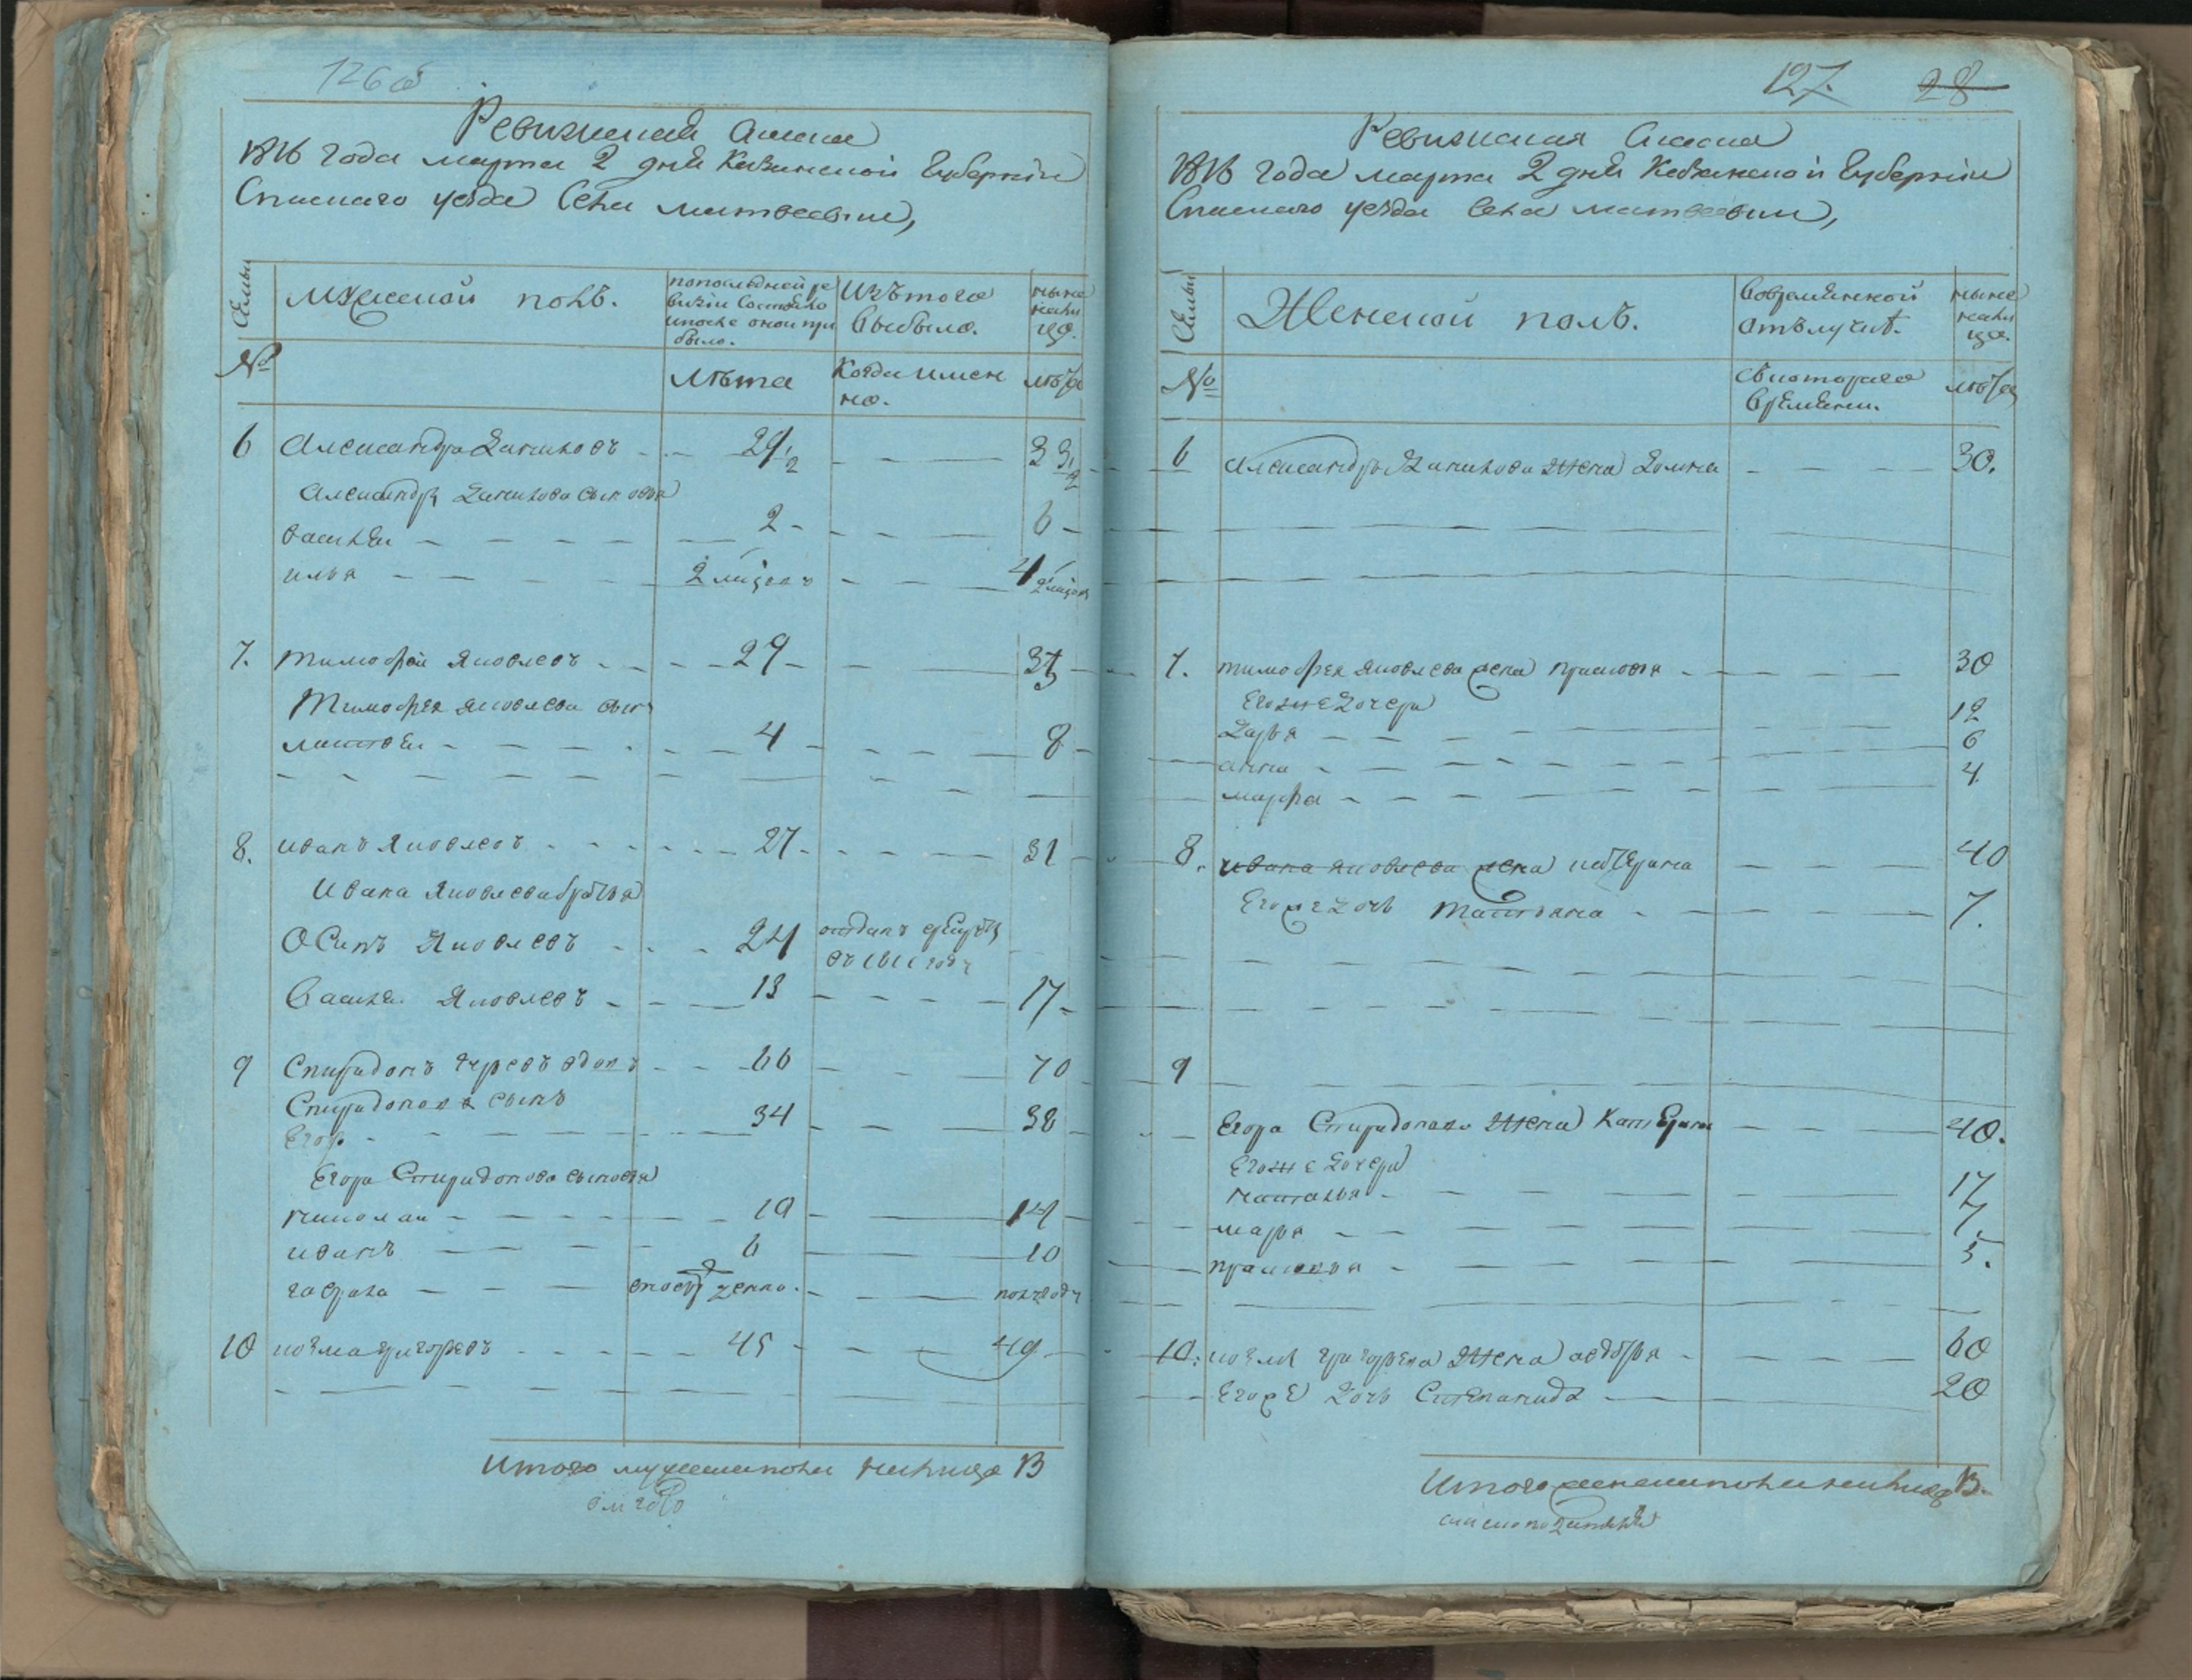 126 об
Ревижская Скаска
1816 Года марта 2 дня Казанской Губернии
Спаскаго уезда Села матвеевки,
Семьи
Мужеской полъ.
попоследней ре
визіи Состояло
ипосле оной при
было.
Изътого
выбыло.
ныне
нали
цо.
№
Лета
Когда имен
но.
лета
6 Александра Даниловъ 29 1/2 33 1/2
Александра Данилова сыновья
василеи 2 6
илья 2 мцовъ 4 2 мцовъ
7. тимофей Яковлевъ 29 33
Тимофея Яковлева сынъ
матвеи 4 8
8. иванъ Яковлевъ 27 31
Ивана Яковлева братья
Осипъ Яковлевъ 24 отданъ врекруты
въ 1811 году
Василеи Яковлевъ 13 17
9 Спиридонъ вдовъ 66 70
Спиридонова сынъ
Егор 34 38
Егора Спиридонова сыновья
николаи 10 14
иванъ 6 10
гаврила послерожденъ полугоду
10 козма григоревъ 45 49
Итого мужеска пола налицо 13
127. 28
Ревижская Скаска
1816 Года марта 2 дня Казанской Губернии
Спаскаго уезда Села матвеевки,
Семьи
Женской полъ.
Вовременной
отълучке.
ныне
нали
цо.
№
Скотораго
времени.
лета
6 Александра Данилова жена Домна 30.
7. тимофея Яковлева жена прасковья 30
Егоже дочери
Дарья 12
анна 6
марфа 4
8. ивана яковлева жена катерина 40
Егоже дочь Татьяна 7.
9
Егора Спиридонова жена Катерина 40.
Егоже дочери
наталья 17
марья 7.
прасковья 5.
10. козмы григорева жена авдотья 60
Егоже дочь Степанида 20
Итого женска пола налицо 13.